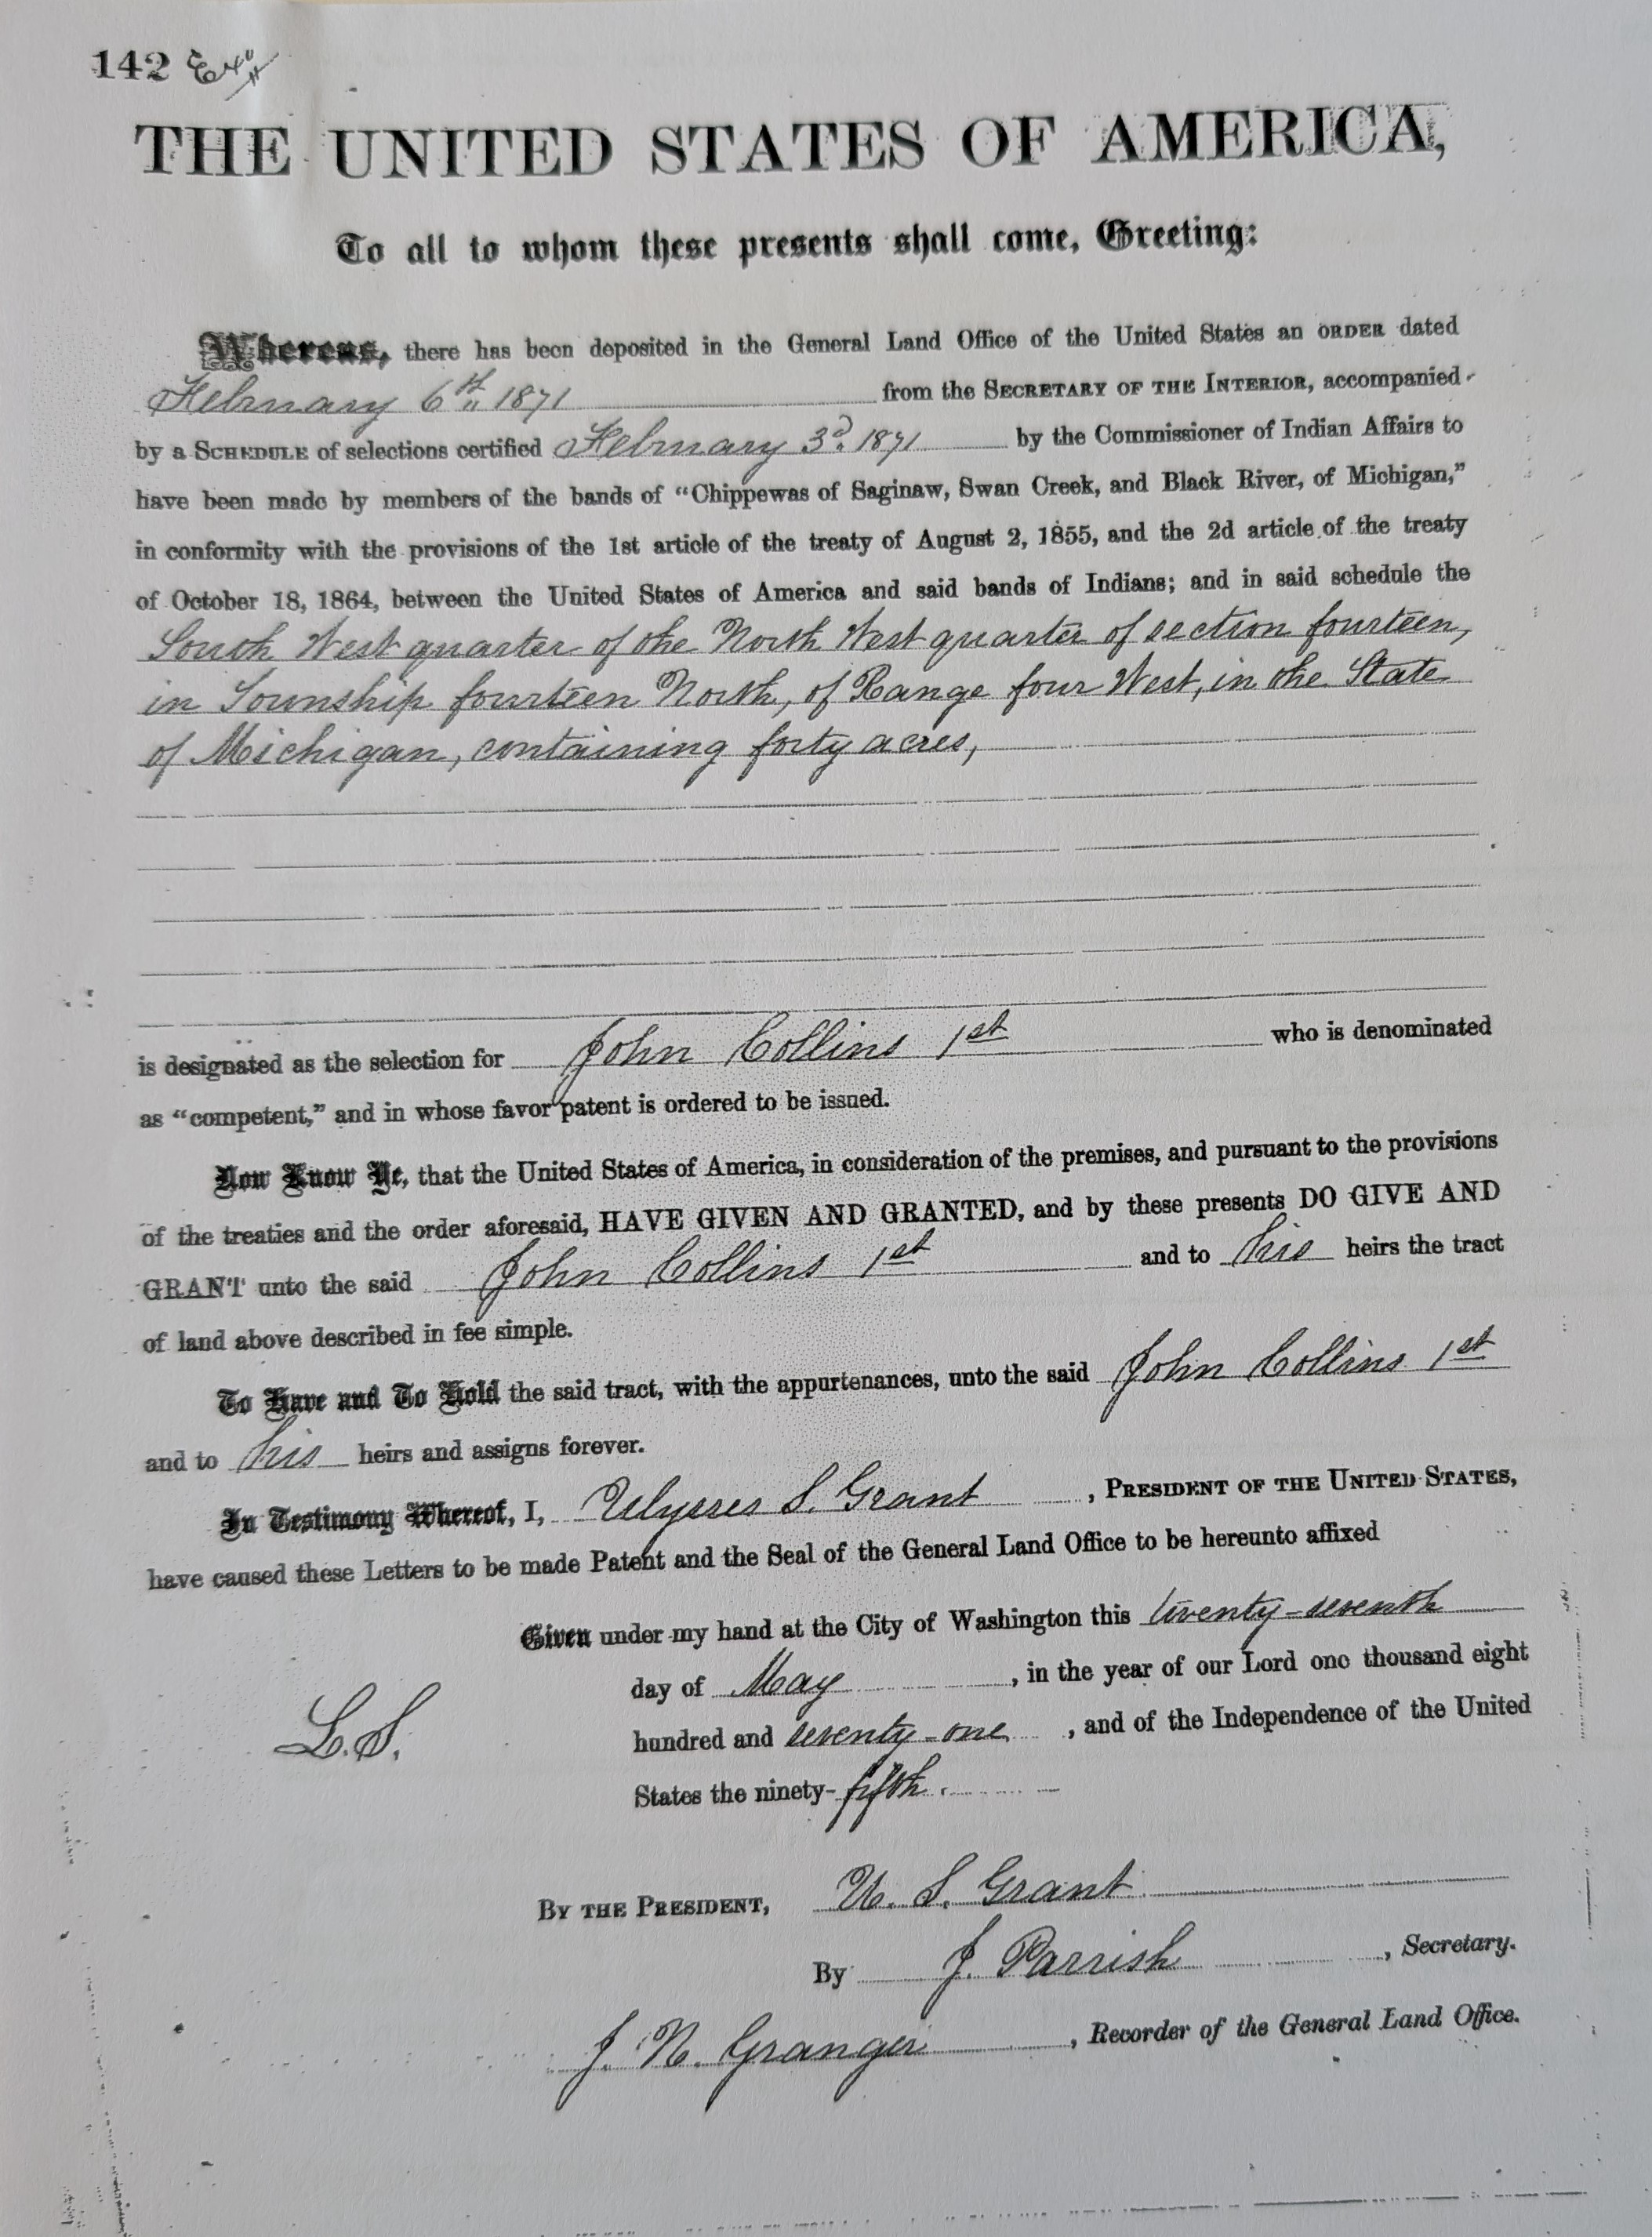 142 Ex'd
THE UNITED STATES OF AMERICA,
To all to whom these presents shall come, Greeting:
Whereas, there has been deposited in the General Land Office of the United States an ORDER dated
February 6th 1871 from the SECRETARY OF THE INTERIOR, accompanied
by a SCHEDULE of selections certified February 3d. 1871 by the Commissioner of Indian Affairs to
have been made by members of the bands of “Chippewas of Saginaw, Swan Creek, and Black River, of Michigan,”
in conformity with the provisions of the 1st article of the treaty of August 2, 1855, and the 2d article of the treaty
of October 18, 1864, between the United States of America and said bands of Indians; and in said schedule the
South West quarter of the North West quarter of section fourteen,
in Township fourteen North, of Range four West, in the State
of Michigan, containing forty acres,
is designated as the selection for John Collins 1st who is denominated
as “competent,” and in whose favor patent is ordered to be issued.
Now Know Ye, that the United States of America, in consideration of the premises, and pursuant to the provisions
of the treaties and the order aforesaid, HAVE GIVEN AND GRANTED, and by these presents DO GIVE AND
GRANT unto the said John Collins 1st and to his heirs the tract
of land above described in fee simple.
To Have and To Hold the said tract, with the appurtenances, unto the said John Collins 1st
and to his heirs and assigns forever.
In Testimony Whereof, I, Ulysses S. Grant, PRESIDENT OF THE UNITED STATES,
have caused these Letters to be made Patent and the Seal of the General Land Office to be hereunto affixed
Given under my hand at the City of Washington this twenty-seventh
day of May, in the year of our Lord one thousand eight
L.S.
hundred and seventy-one, and of the Independence of the United
States the ninety-fifth.
BY THE PRESIDENT, U. S. Grant
By J. Parrish, Secretary.
J. N. Granger, Recorder of the General Land Office.